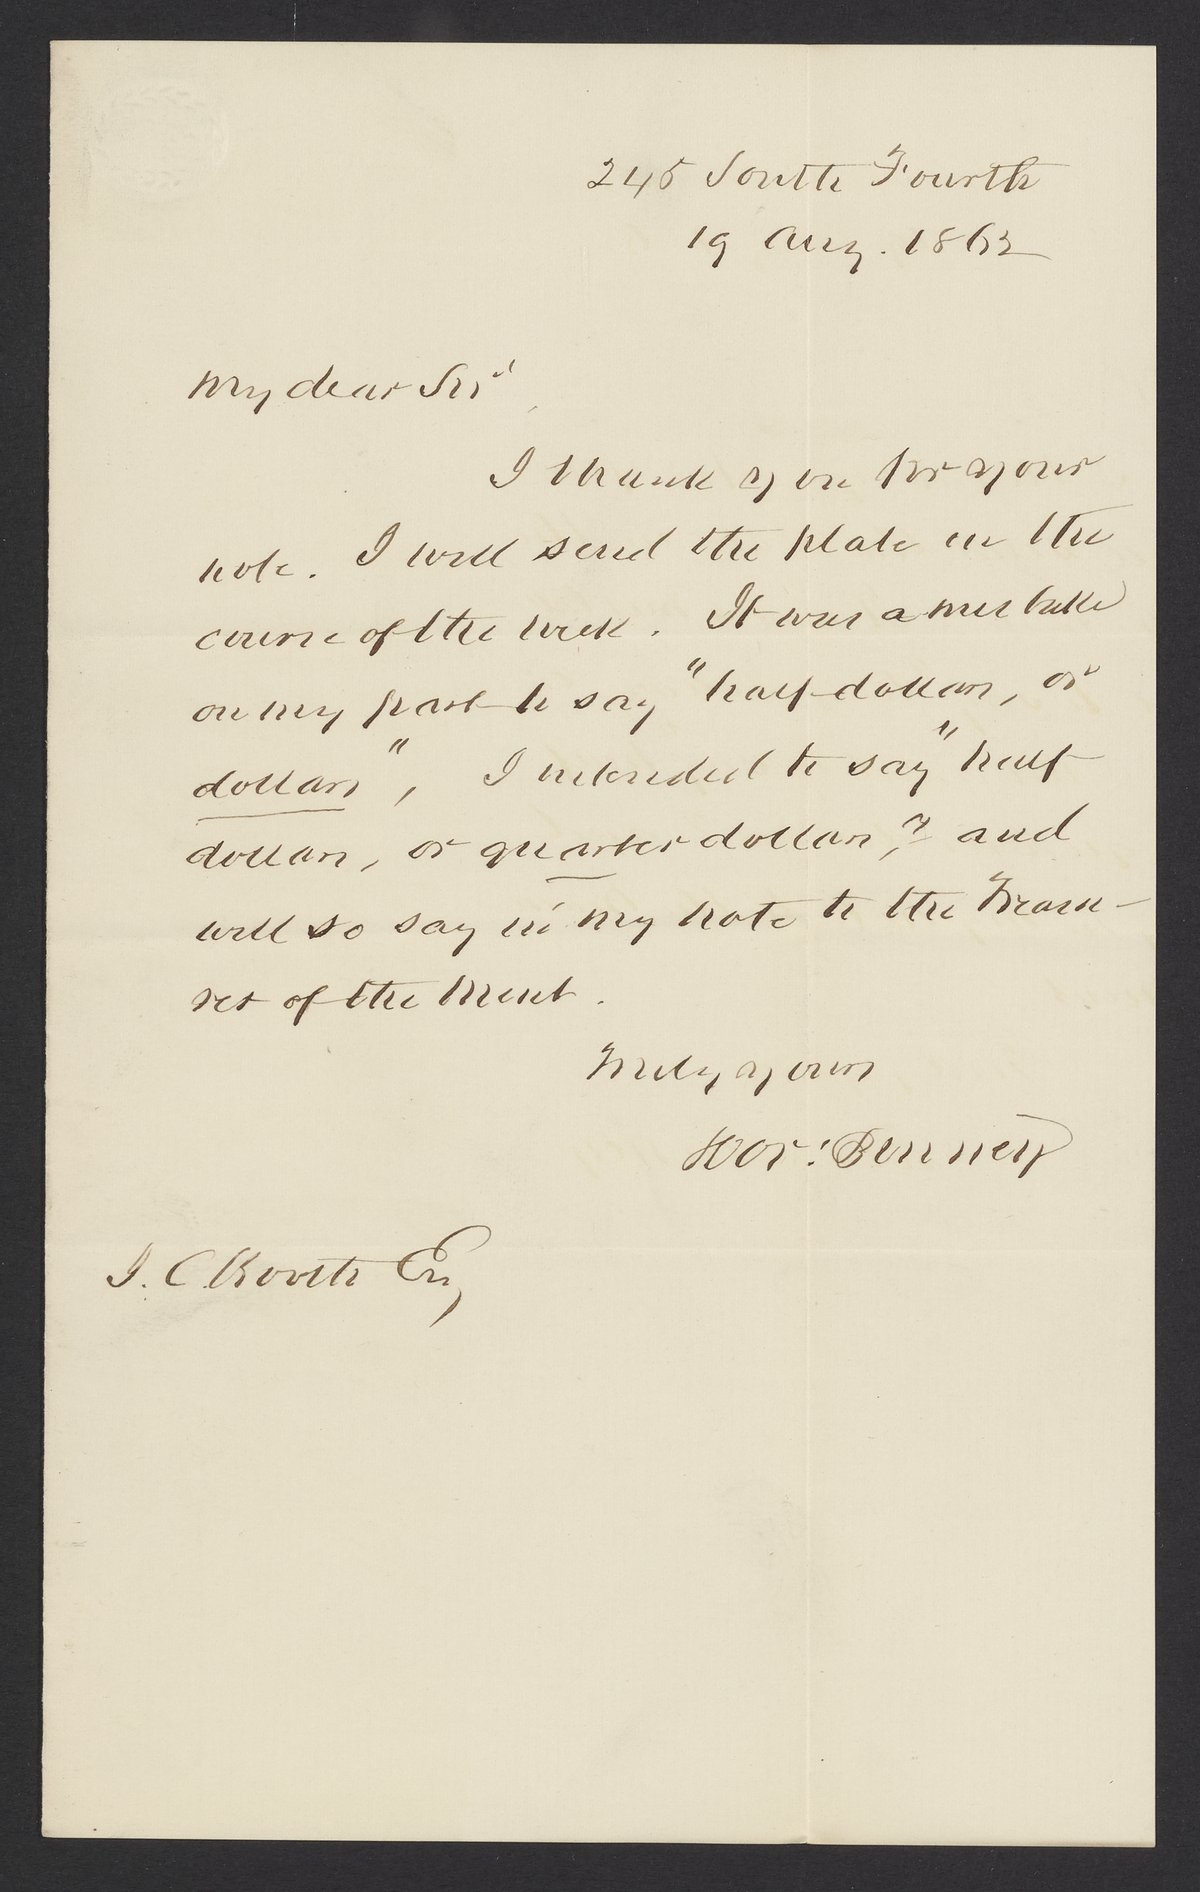 245 South Fourth
19 Aug. 1862
My dear Sir,
I thank you for your
note. I will send the plate in the
course of the week. It was a mistake
on my part to say "half dollars, or
dollars", I intended to say "half
dollars, or quarter dollars," and
will so say in my note to the Treasu-
rer of the Mint.
Truly yours
Hor: Binney
J. C. Booth Esq